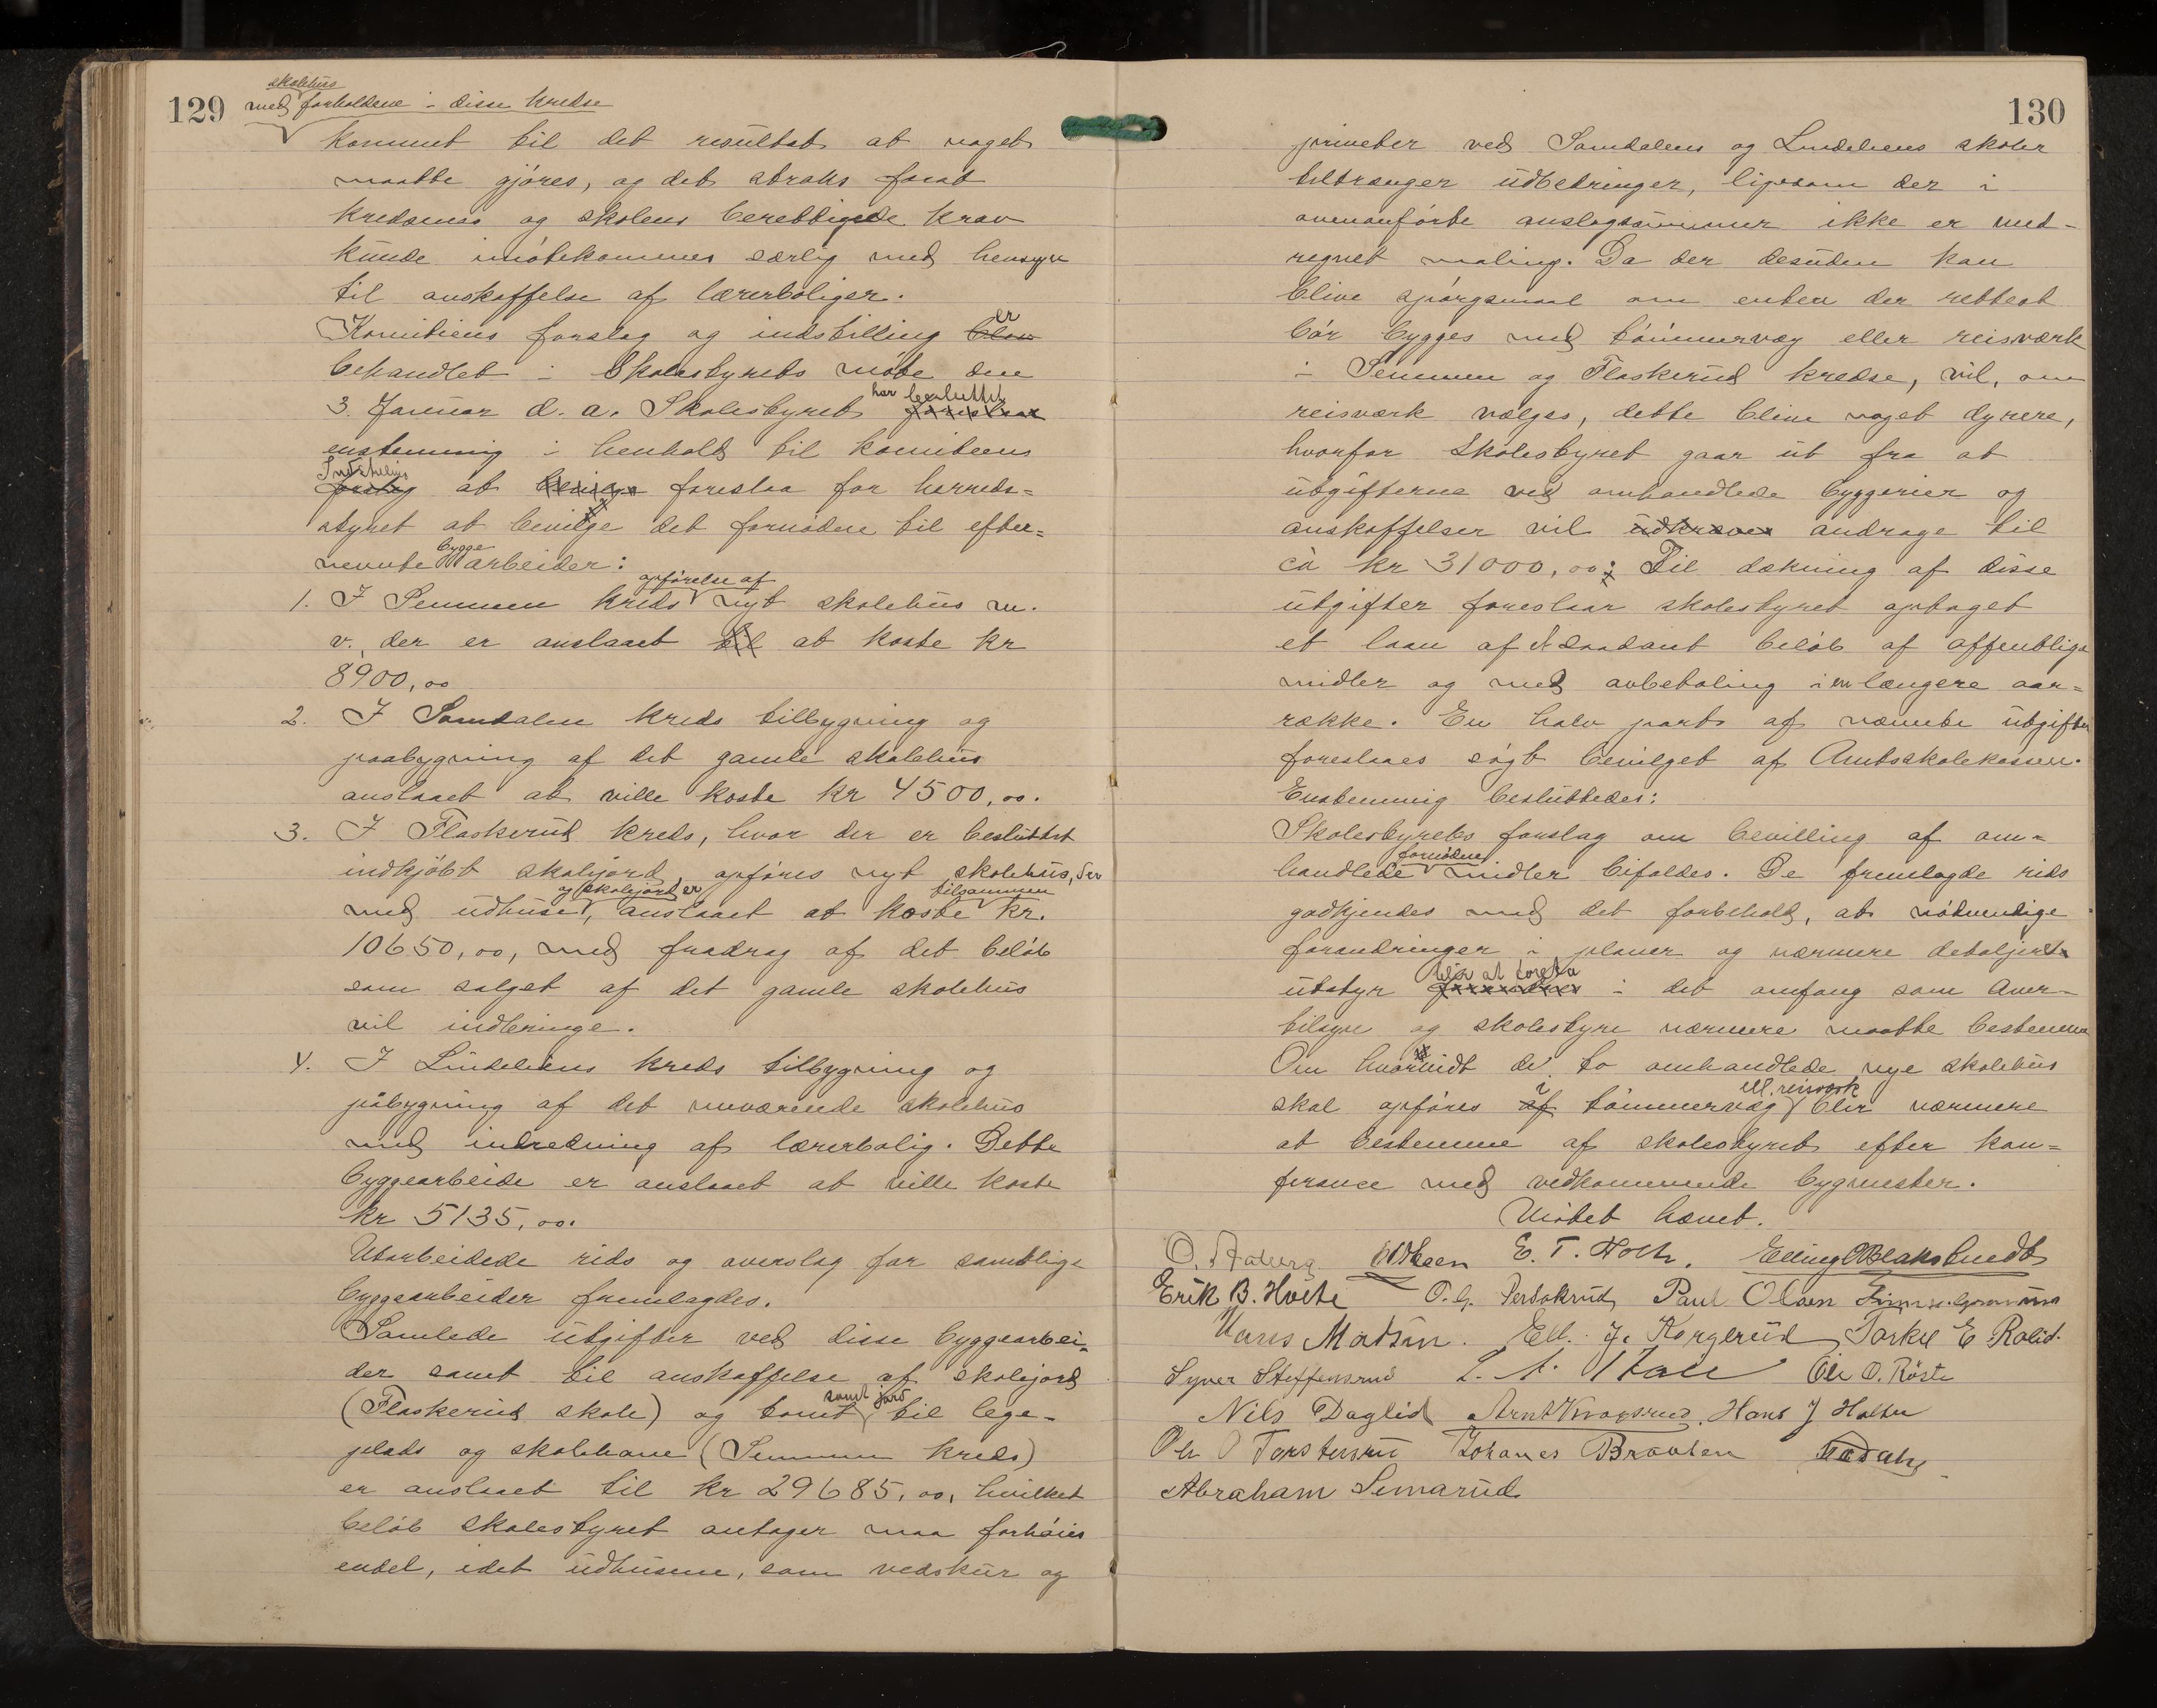 129
skolehus
med forholdene i disse kredse
kommet til det resultat at noget
maatte gjøres, og det straks forat
kredsenes og skolens berettigede krav
kunde imøtekommes særlig med hensyn
til anskaffelse af lærerboliger.
er
Komiteens forslag og indstilling blev
behandlet i Skolestyrets møte den
har besluttet
3. Januar d. a. Skolestyret foreslaar
enstemmig i henhold til komiteens
Indstilling
forslag at bevilge foreslaa for herreds=
styret at bevilge det fornødne til efter=
bygge
nevnte arbeider:
opførelse af
1. I Semmen kreds nyt skolehus m.
v., der er anslaaet til at koste kr
8900,00
2. I Samdalen kreds tilbygning og
paabygning af det gamle skolehus
anslaaet at ville koste kr 4500,00.
3. I Flaskerud kreds, hvor der er besluttet
indkjøbt skolejord, opføres nyt skolehus, der
og skolejord er tilsammen
med udhuse, anslaaet at koste kr.
10650,00, med fradrag af det beløb
som salget af det gamle skolehus
vil indbringe.
4. I Lindeliens kreds tilbygning og
påbygning af det nuværende skolehus
med indredning af lærerbolig. Dette
byggearbeide er anslaaet at ville koste
kr 5135,00.
Utarbeidede rids og overslag for samtlige
byggearbeider fremlagdes.
Samlede utgifter ved disse byggearbei=
der samt til anskaffelse af skolejord
samt jord
(Flaskerud skole) og tomt til lege-
plads og skolehave (Semmen kreds)
er anslaaet til kr 29685,00, hvilket
beløb skolestyret antager maa forhøies
endel, idet udhusene, som vedskur og
130
priveter ved Samdalens og Lindeliens skoler
tiltrænger udbedringer, ligesom der i
ovenanførte anslagssummer ikke er med-
regnet maling. Da der desuden kan
blive spørgsmaal om enten der rettest
bør bygges med tømmervæg eller reisværk
i Semmen og Flaskerud kredse, vil, om
reisværk vælges, dette blive noget dyrere,
hvorfor Skolestyret gaar ut fra at
utgifterne ved omhandlede byggerier og
anskaffelser vil udkræves andrage til
cà kr 31000,00; Til dækning af disse
utgifter foreslaar skolestyret optaget
et laan af et saadant beløb af offentlige
midler og med avbetaling i en længere aar=
række. En halv part af nævnte utgifter
foreslaaes søgt bevilget af Amtsskolekassen.
Enstemmig besluttedes:
Skolestyrets forslag om bevilling af om=
fornødne
handlede midler bifaldes. De fremlagde rids
godkjendes med det forbehold, at nødvendige
forandringer i planer og nærmere detaljerte
blir at foreta
utstyr forandres i det omfang som aver-
tilsyn og skolestyre nærmere maatte bestemme
Om hvorvidt de to omhandlede nye skolehus
i ell. reisværk
skal opføres af tømmervæg blir nærmere
at bestemme af skolestyret efter kon=
ferance med vedkommende bygmester.
Møtet hævet.
E. T. Holth.
Erik B. Holte O. G. Paul Olsen
Hans Madsen. Ell. J. Korgerud Torkel E. Rolid.
Syver Steffensrud Ole O. Røste
Nils Daglid Arnt Knogsrud. Hans J Holter
Ole O Torstensrud Johanes Braaten
Abraham Semarud